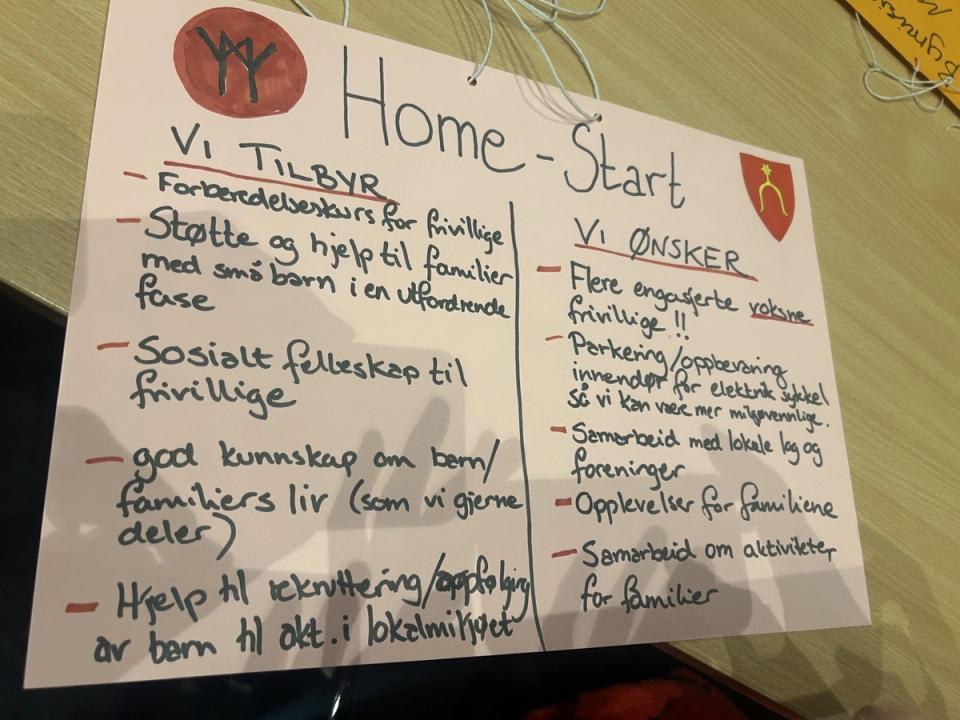 Home-Start
VI TILBYR
- Forberedelseskurs for frivillige
- Støtte og hjelp til familier
med små barn i en utfordrende
fase
- Sosialt felleskap til
frivillige
- god kunnskap om barn/
familiers liv (som vi gjerne
deler)
- Hjelp til rekruttering/oppfølging
av barn til akt. i lokalmiljøet
VI ØNSKER
- Flere engasjerte voksne
frivillige !!
- Parkering/oppbevaring
innendør for elektrik sykkel
så vi kan være mer miljøvennlige.
- Samarbeid med lokale lag og
foreninger
- Opplevelser for familiene
- Samarbeid om aktiviteter
for familier